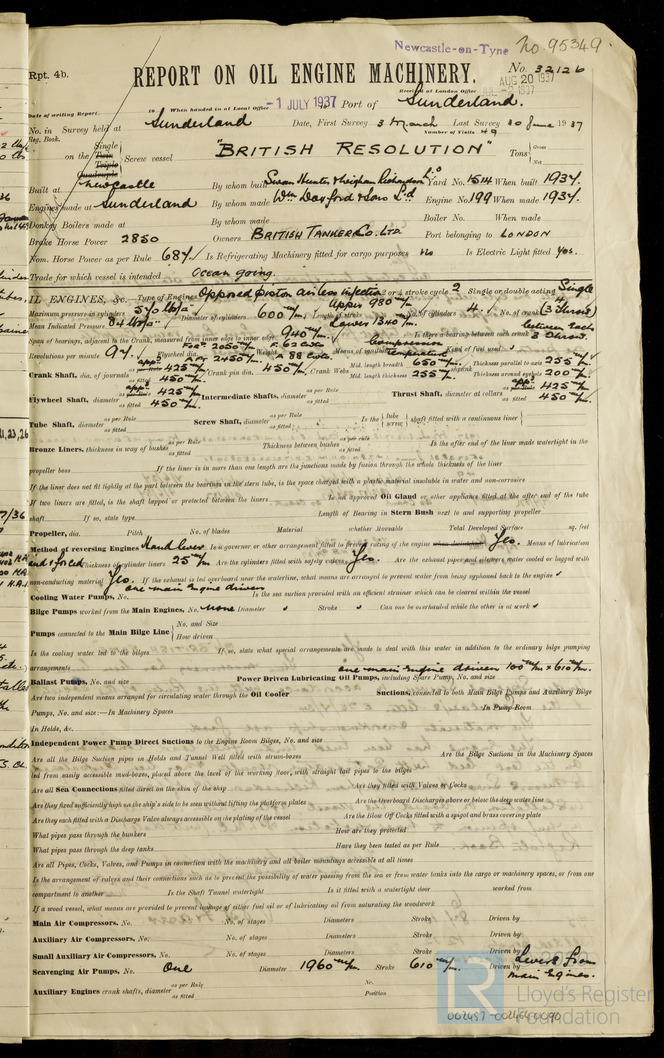 Newcastle-on-Tyne No. 95349.
Rpt. 4b. No. 32126
REPORT ON OIL ENGINE MACHINERY.
AUG 20 1937
Received at London Office
Date of writing Report When handed in at Local Office -1 JULY 1937 Port of Sunderland.
No. in Survey held at Sunderland Date, First Survey 3 March Last Survey 30 June 1937
Reg. Book. Number of Visits 49
Single
on the Twin Screw vessel "BRITISH RESOLUTION" Tons Gross
Triple Net
Quadruple
Built at Newcastle By whom built Swan Hunter & Wigham Richardson Ld Yard No. 1514 When built 1937.
Engines made at Sunderland By whom made Wm Doxford & Sons Ld Engine No. 199 When made 1937.
Donkey Boilers made at By whom made Boiler No. When made
Brake Horse Power 2850 Owners BRITISH TANKER CO. LTD Port belonging to LONDON
Nom. Horse Power as per Rule 687. Is Refrigerating Machinery fitted for cargo purposes No Is Electric Light fitted Yes.
Trade for which vessel is intended Ocean going.
IL ENGINES, &c. Type of Engines Opposed piston airless injection 2 or 4 stroke cycle 2 Single or double acting Single
Maximum pressure in cylinders Diameter of cylinders 600 m/m Length of stroke Upper 980 m/m No. of cylinders 4 No. of cranks 4 (3 throws)
Mean Indicated Pressure Lower 1340 m/m.
Span of bearings, adjacent to the Crank, measured from inner edge to inner edge 940 m/m Is there a bearing between each crank between each 3 throws.
Revolutions per minute 97 Flywheel dia. For. 2050 m/m Aft 2450 m/m Weight F. 62 cwts A 88 cwts. Means of ignition Compression Temperature Kind of fuel used
Crank Shaft, dia. of journals as per Rule appd 425 m/m as fitted 450 m/m. Crank pin dia. 450 m/m. Crank Webs Mid. length breadth 650 m/m. Mid. length thickness 255 m/m. shrunk Thickness parallel to axis 255 m/m Thickness around eyehole 200 m/m
Flywheel Shaft, diameter as per Rule appd 425 m/m as fitted 450 m/m. Intermediate Shafts, diameter as per Rule as fitted Thrust Shaft, diameter at collars as per Rule appd 425 m/m as fitted 450 m/m.
Tube Shaft, diameter as per Rule as fitted Screw Shaft, diameter as per Rule as fitted Is the tube screw shaft fitted with a continuous liner
Bronze Liners, thickness in way of bushes as per Rule as fitted Thickness between bushes as per rule as fitted Is the after end of the liner made watertight in the
propeller boss If the liner is in more than one length are the junctions made by fusion through the whole thickness of the liner
If the liner does not fit tightly at the part between the bearings in the stern tube, is the space charged with a plastic material insoluble in water and non-corrosive
If two liners are fitted, is the shaft lapped or protected between the liners Is an approved Oil Gland or other appliance fitted at the after end of the tube
shaft If so, state type Length of Bearing in Stern Bush next to and supporting propeller
Propeller, dia. Pitch No. of blades Material whether Moveable Total Developed Surface sq. feet
Method of reversing Engines Hand lever Is a governor or other arrangement fitted to prevent racing of the engine Yes. Means of lubrication
and forced Thickness of cylinder liners 25 m/m Are the cylinders fitted with safety valves Yes. Are the exhaust pipes and silencers water cooled or lagged with
non-conducting material Yes. If the exhaust is led overboard near the waterline, what means are arranged to prevent water from being syphoned back to the engine
Cooling Water Pumps, No. one main engine driven Is the sea suction provided with an efficient strainer which can be cleared within the vessel
Bilge Pumps worked from the Main Engines, No. None Diameter Stroke Can one be overhauled while the other is at work
Pumps connected to the Main Bilge Line No. and Size
How driven
Is the cooling water led to the bilges If so, state what special arrangements are made to deal with this water in addition to the ordinary bilge pumping
arrangements
Ballast Pumps, No. and size Power Driven Lubricating Oil Pumps, including Spare Pump, No. and size one main engine driven 100 m/m x 610 m/m.
Are two independent means arranged for circulating water through the Oil Cooler Suctions, connected to both Main Bilge Pumps and Auxiliary Bilge
Pumps, No. and size:—In Machinery Spaces In Pump Room
In Holds, &c.
Independent Power Pump Direct Suctions to the Engine Room Bilges, No. and size
Are all the Bilge Suction pipes in Holds and Tunnel Well fitted with strum-boxes Are the Bilge Suctions in the Machinery Spaces
led from easily accessible mud-boxes, placed above the level of the working floor, with straight tail pipes to the bilges
Are all Sea Connections fitted direct on the skin of the ship Are they fitted with Valves or Cocks
Are they fixed sufficiently high on the ship's side to be seen without lifting the platform plates Are the Overboard Discharges above or below the deep water line
Are they each fitted with a Discharge Valve always accessible on the plating of the vessel Are the Blow Off Cocks fitted with a spigot and brass covering plate
What pipes pass through the bunkers How are they protected
What pipes pass through the deep tanks Have they been tested as per Rule
Are all Pipes, Cocks, Valves, and Pumps in connection with the machinery and all boiler mountings accessible at all times
Is the arrangement of valves and their connections such as to prevent the possibility of water passing from the sea or from water tanks into the cargo or machinery spaces, or from one
compartment to another Is the Shaft Tunnel watertight Is it fitted with a watertight door worked from
If a wood vessel, what means are provided to prevent leakage of either fuel oil or of lubricating oil from saturating the woodwork
Main Air Compressors, No. No. of stages Diameters Stroke Driven by
Auxiliary Air Compressors, No. No. of stages Diameters Stroke Driven by
Small Auxiliary Air Compressors, No. No. of stages Diameters Stroke Driven by
Scavenging Air Pumps, No. One Diameter 1960 m/m. Stroke 610 m/m. Driven by Levers from main Engines.
Auxiliary Engines crank shafts, diameter as per Rule as fitted No. Position
LR Lloyd's Register Foundation
002457-002464-0090